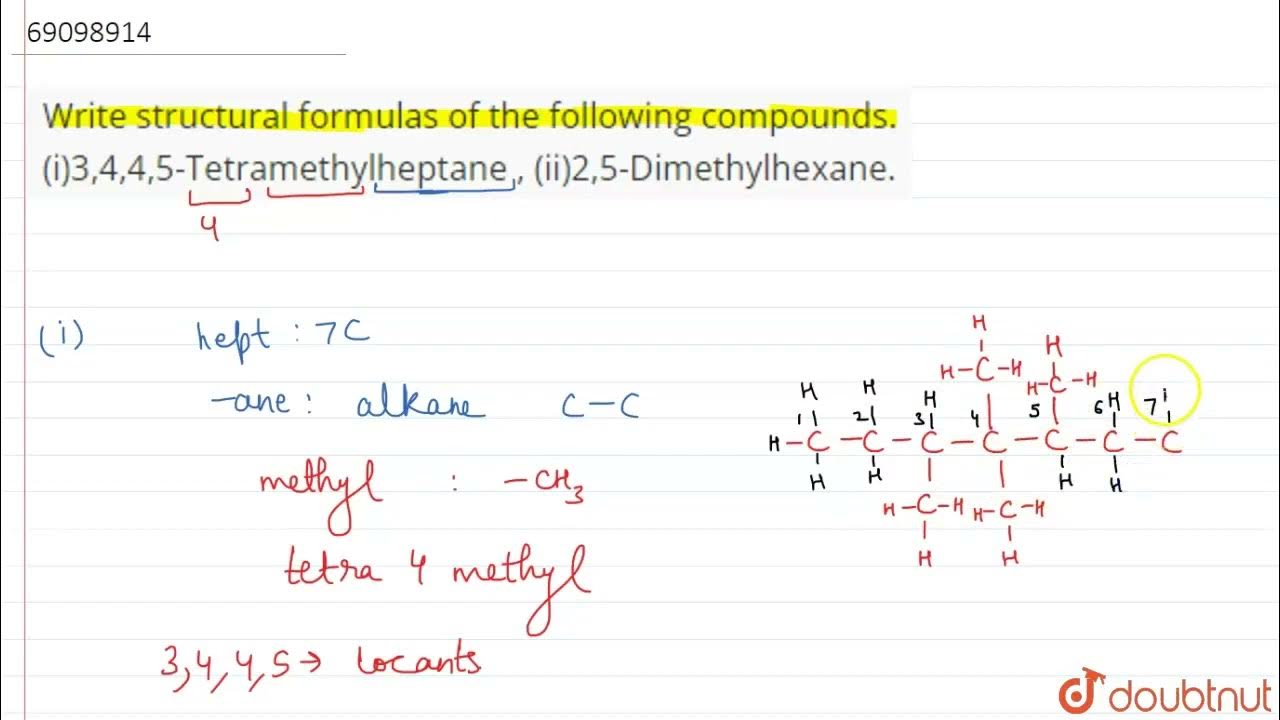 69098914
Write structural formulas of the following compounds.
(i)3,4,4,5-Tetramethylheptane , (ii)2,5-Dimethylhexane.
4
(i) hept : 7C
-ane : alkane C-C
methyl : -CH3
tetra 4 methyl
3,4,4,5→ locants
H
H
H-C-H
H-C-H
H H H
1 2 3 4 5 6H 7
H-C-C-C-C-C-C-C
H H H H
H-C-H H-C-H
H H
doubtnut